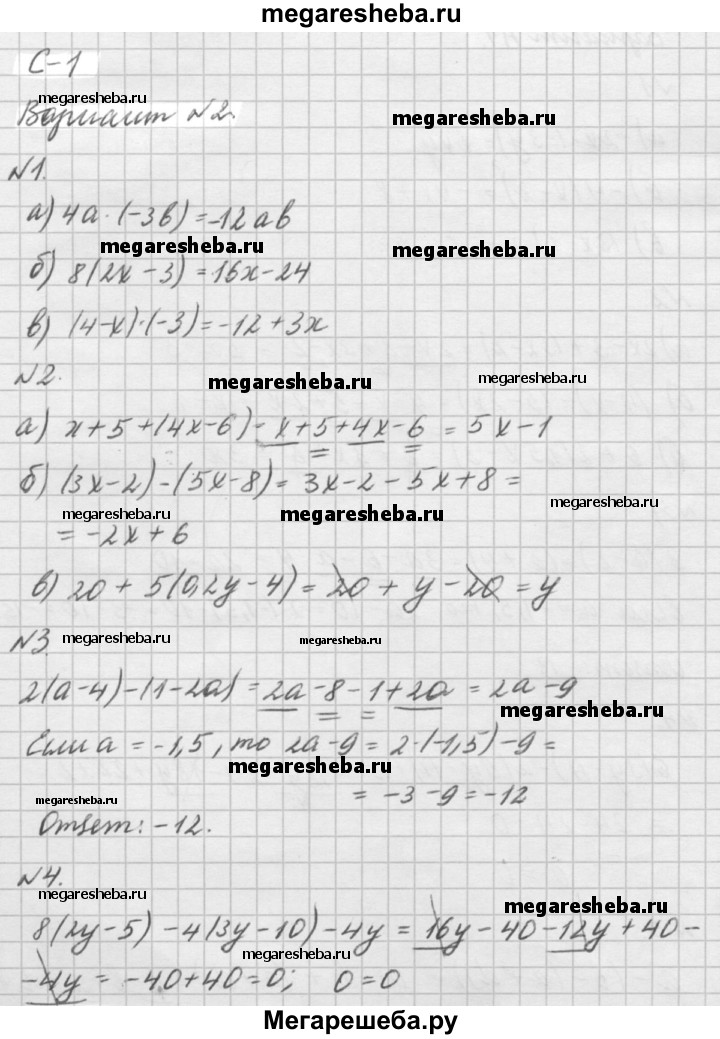 megaresheba.ru
С-1
megaresheba.ru
Вариант №2.
megaresheba.ru
№1.
а) 4a·(-3b) = -12ab
megaresheba.ru
megaresheba.ru
б) 8(2x-3) = 16x-24
в) (4-x)·(-3) = -12+3x
№2.
megaresheba.ru
megaresheba.ru
а) x+5+(4x-6) - x+5+4x-6 = 5x-1
б) (3x-2)-(5x-8) = 3x-2-5x+8 =
megaresheba.ru
megaresheba.ru
megaresheba.ru
= -2x+6
в) 20+5(0,2y-4) = 20+y-20 = y
№3.
megaresheba.ru
megaresheba.ru
2(a-4)-(1-2a) = 2a-8-1+2a = 2a-9
megaresheba.ru
Если a = -1,5, то 2a-9 = 2·(-1,5)-9 =
megaresheba.ru
= -3-9 = -12
megaresheba.ru
Ответ: -12.
№4.
megaresheba.ru
megaresheba.ru
8(2y-5)-4(3y-10)-4y = 16y-40-12y+40-
megaresheba.ru
-4y = -40+40=0; 0=0
Мегарешеба.ру